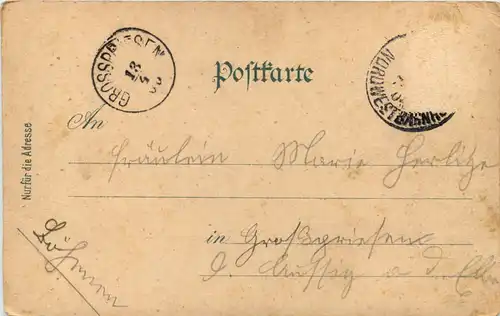 GROSSPRIESEN
13
Postkarte
NORDWESTBAHNHOF
An
Fräulein Marie Herlitze
in Grosspriesen
b. Aussig a d. Elbe
Böhmen
Nur für die Adresse